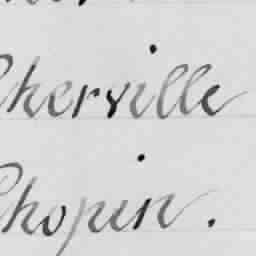 Cherville
Chopin.